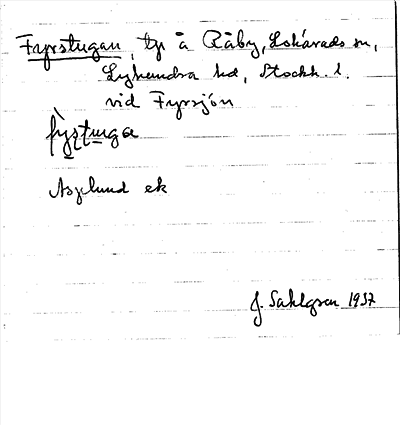 Fyrstugan, tp å Råby, Lohärads sn,
Lyhundra hd, Stockh. l.
vid Fyrsjön
fỳsṭuga
Asplund ek
J. Sahlgren 1937